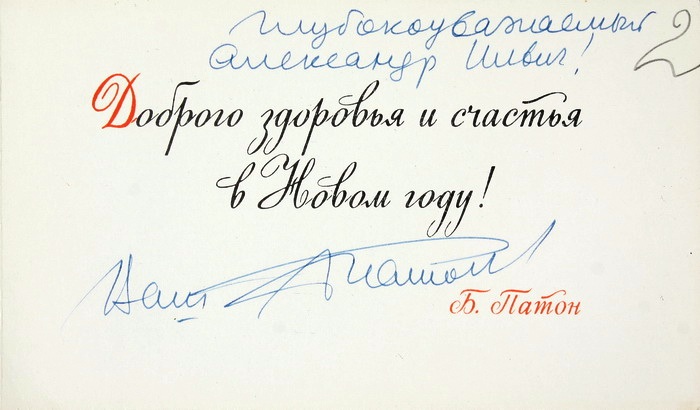 Глубокоуважаемый
Александр Ильич!
2
Доброго здоровья и счастья
в Новом году!
Ваш Б Патон
Б. Патон